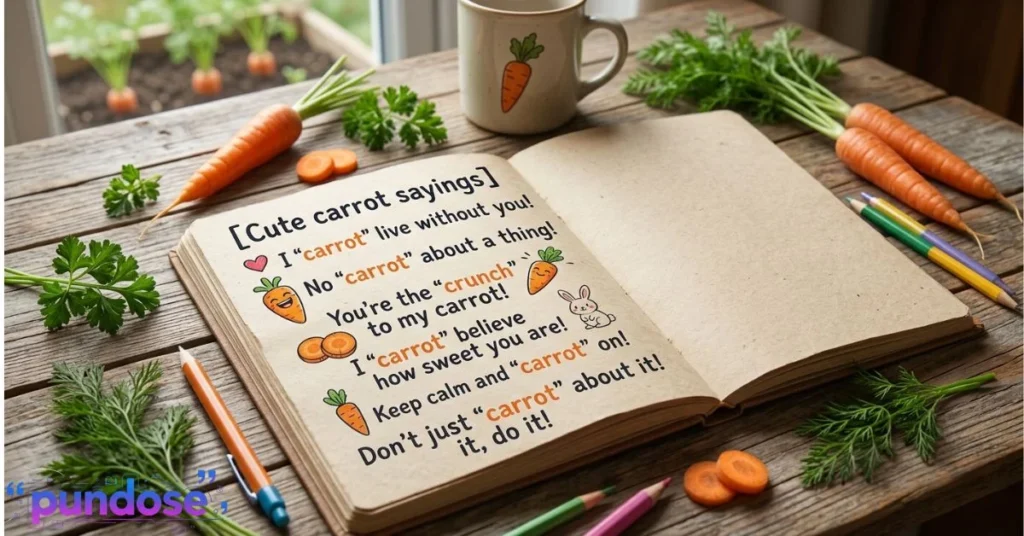 [Cute carrot sayings]
I “carrot” live without you!
No “carrot” about a thing!
You're the “crunch”
to my carrot!
I “carrot” believe
how sweet you are!
Keep calm and “carrot” on!
Don't just “carrot” about it!
it, do it!
“pundose”